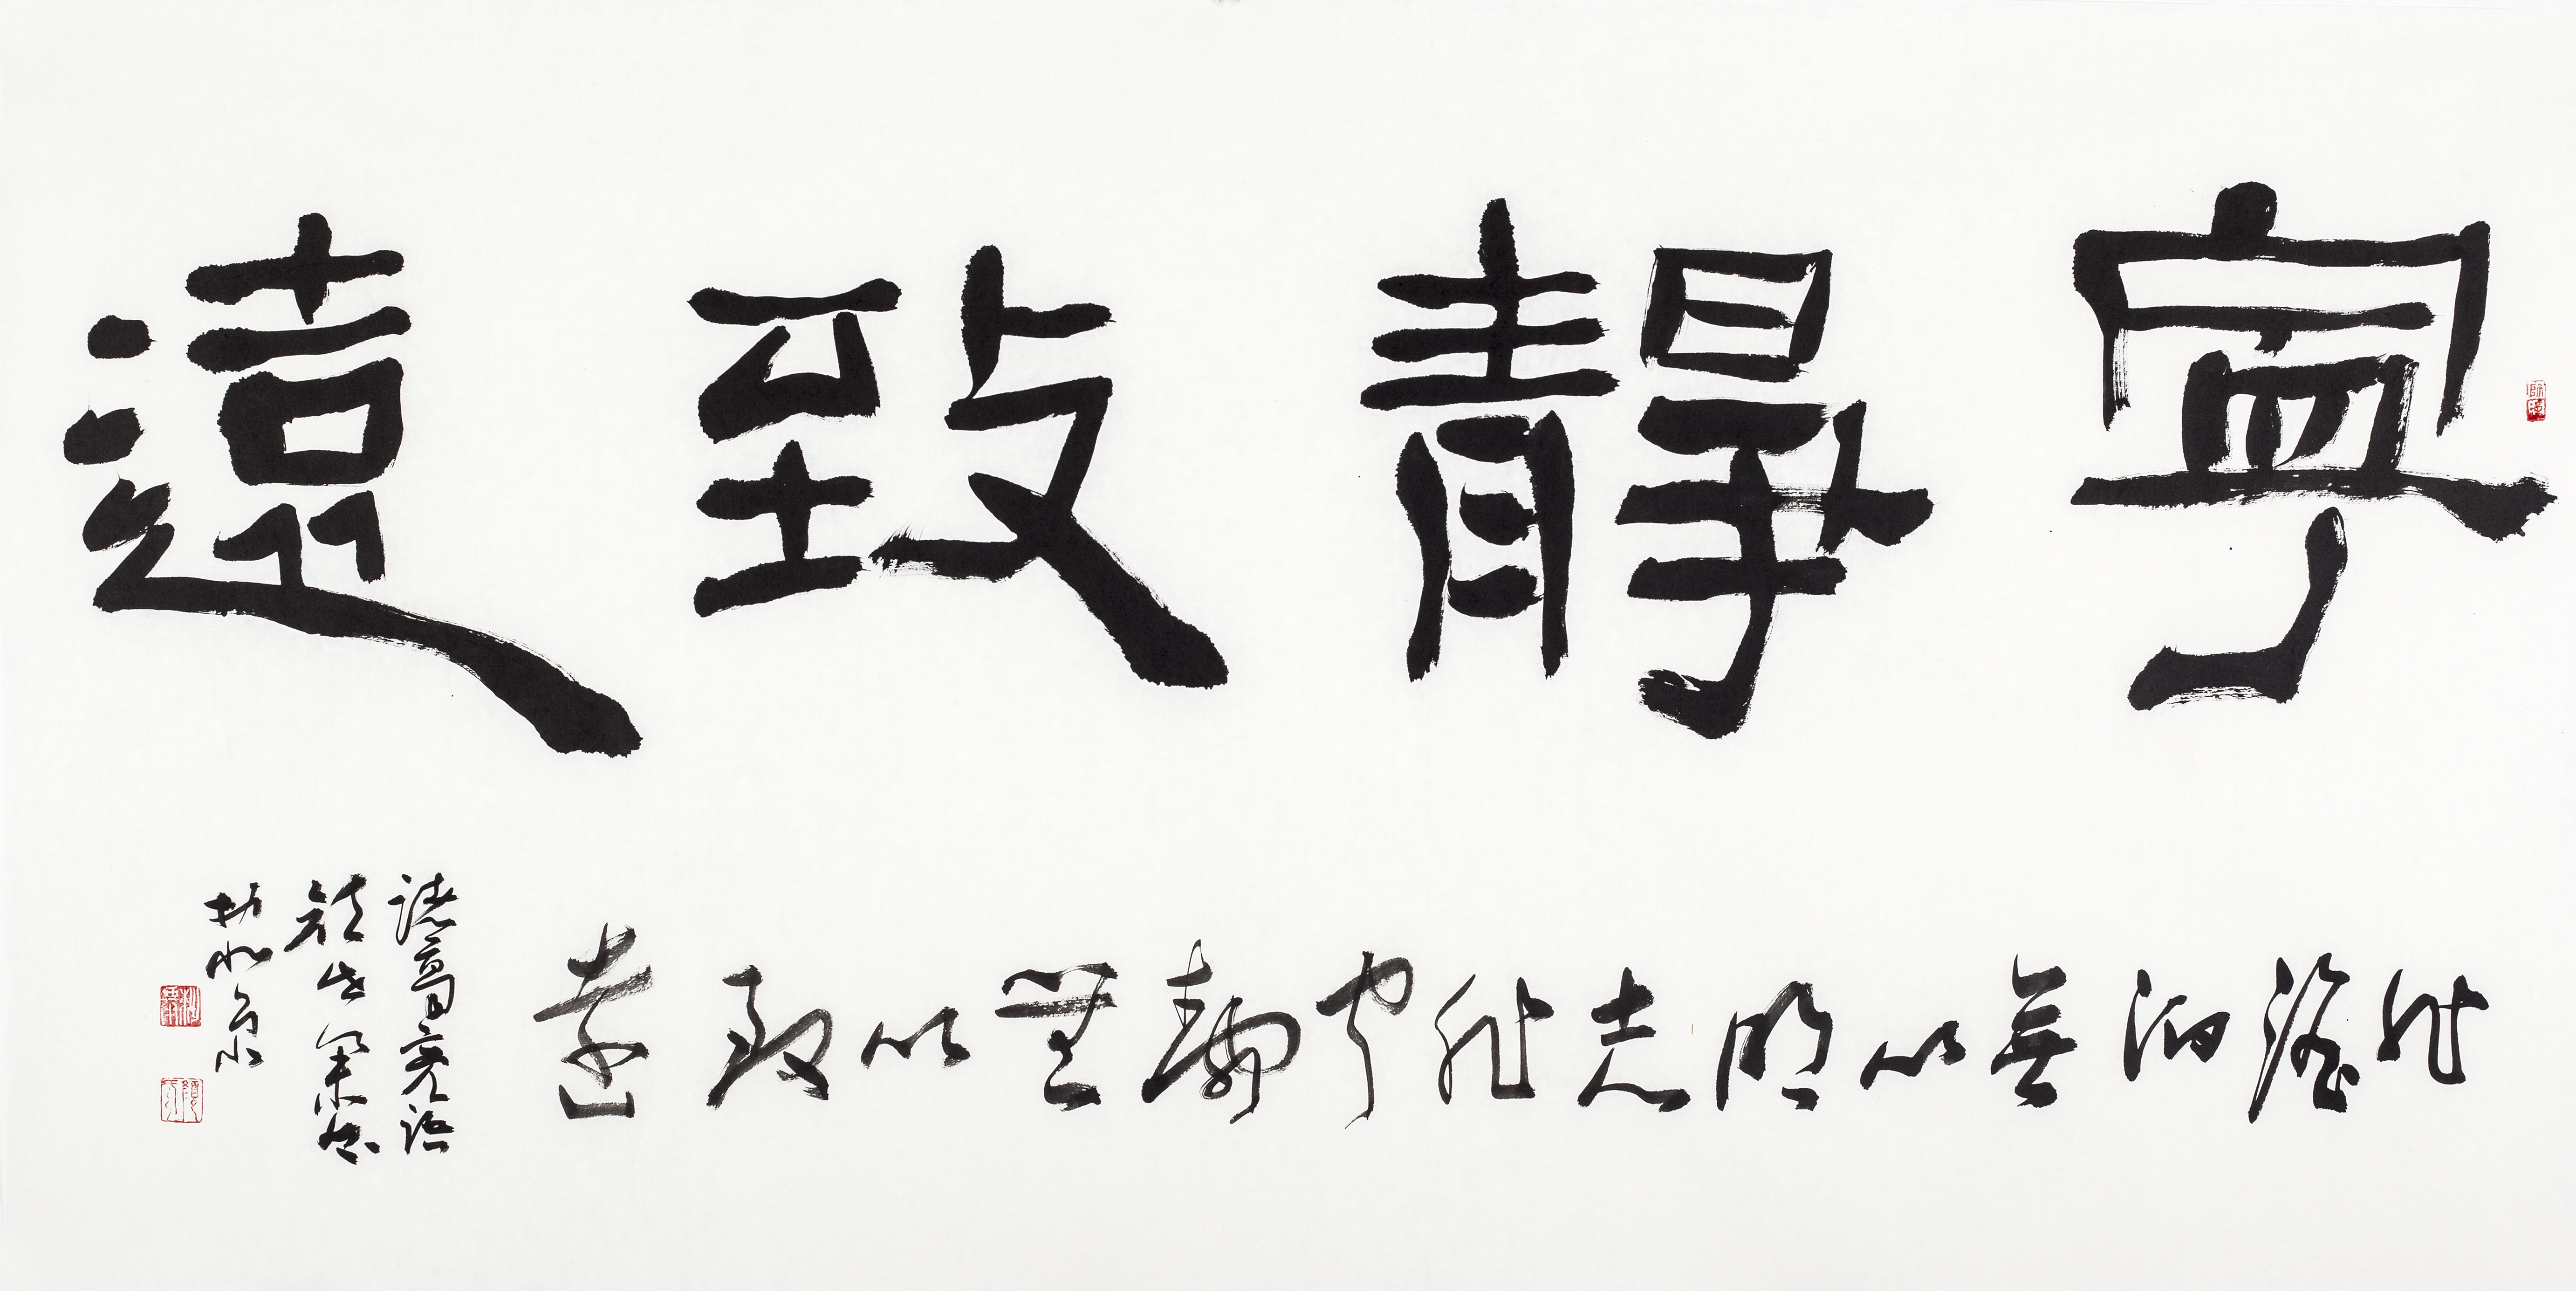 寧靜致遠
非澹泊無以明志非寧靜無以致遠
諸葛亮語